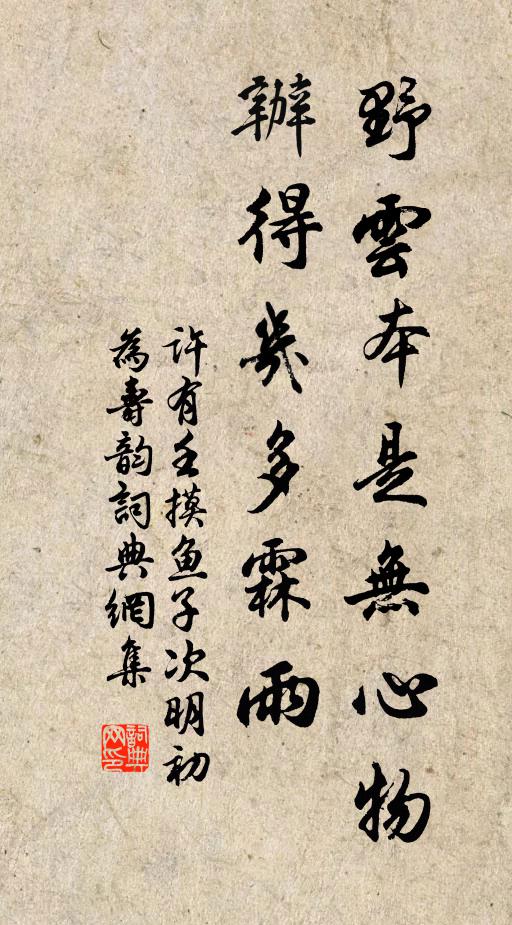 野雲本是無心物
辦得幾多霖雨
許有壬摸魚子次明初
為壽韵詞典網集
詞典網印